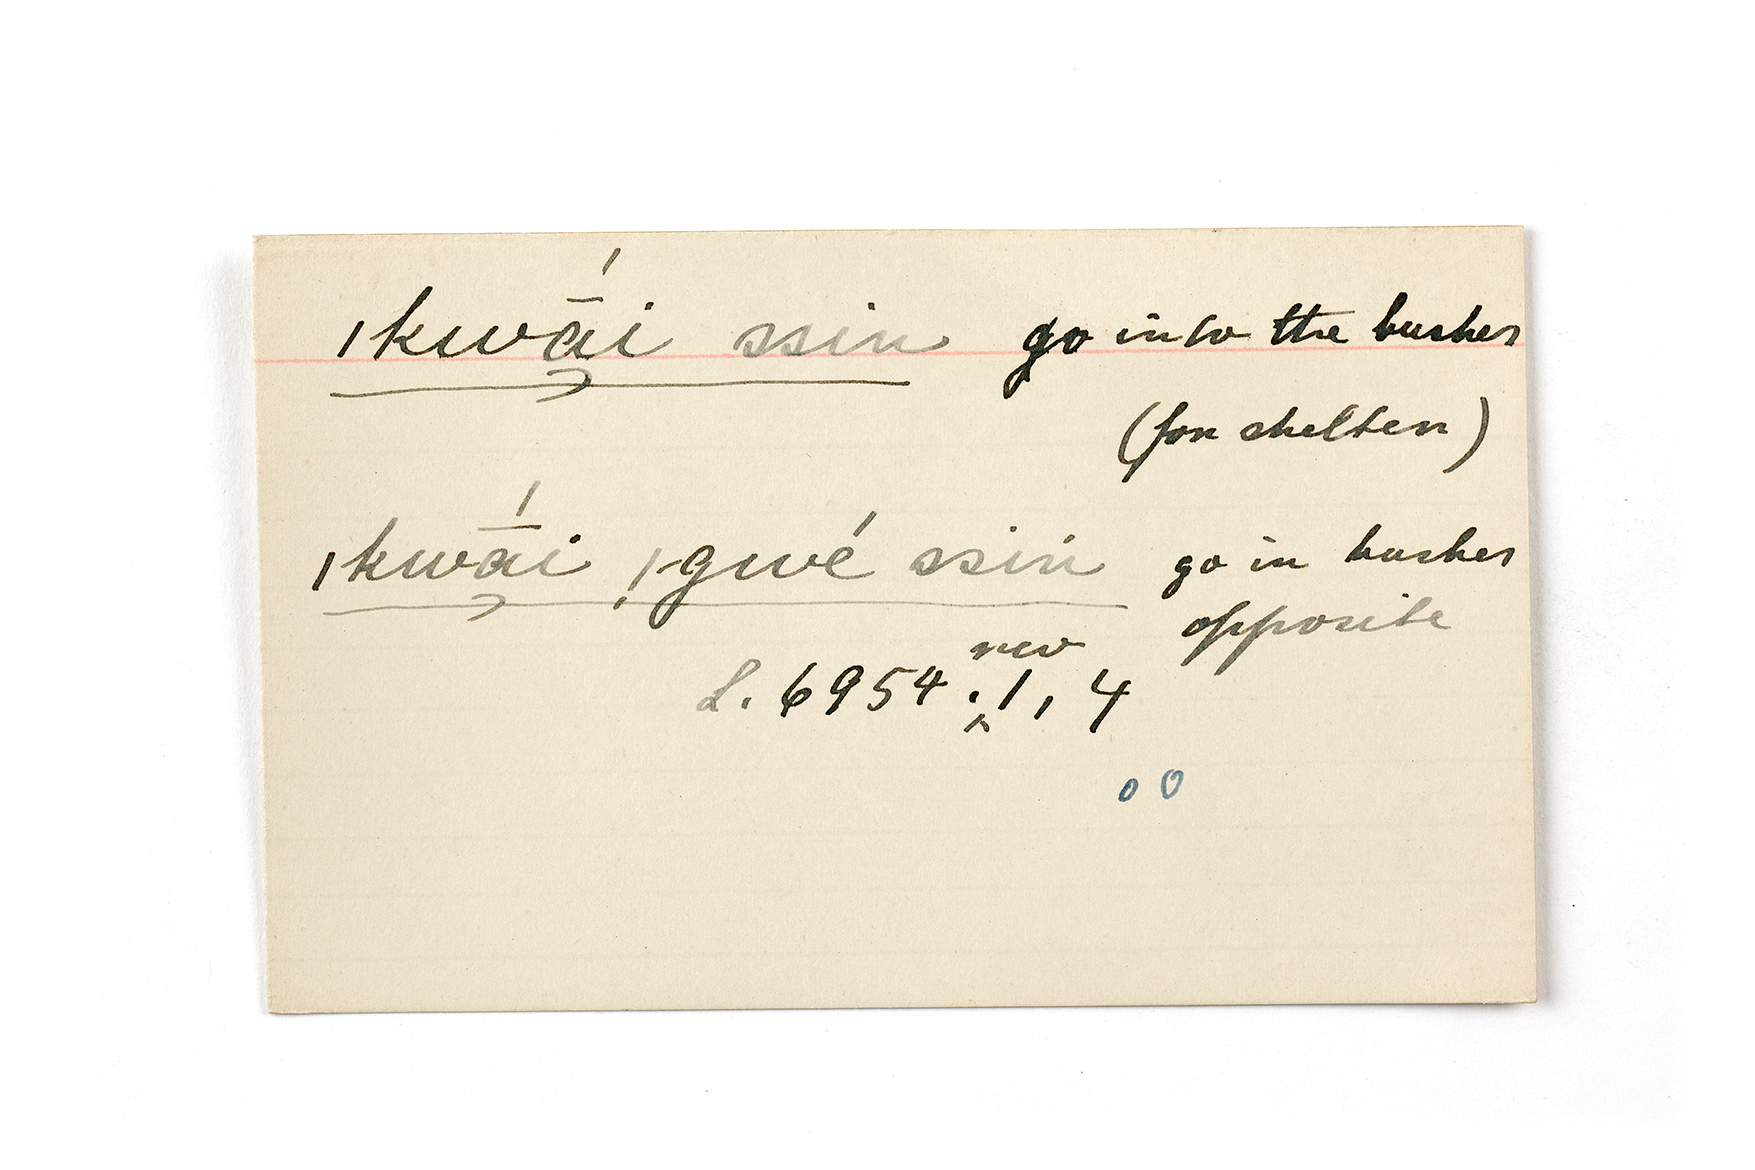 ǀkwā́i ssin go into the bushes
(for shelter)
ǀkwā́i ǃgwé ssin go in bushes
opposite
rev
L. 6954 . 1, 4
00